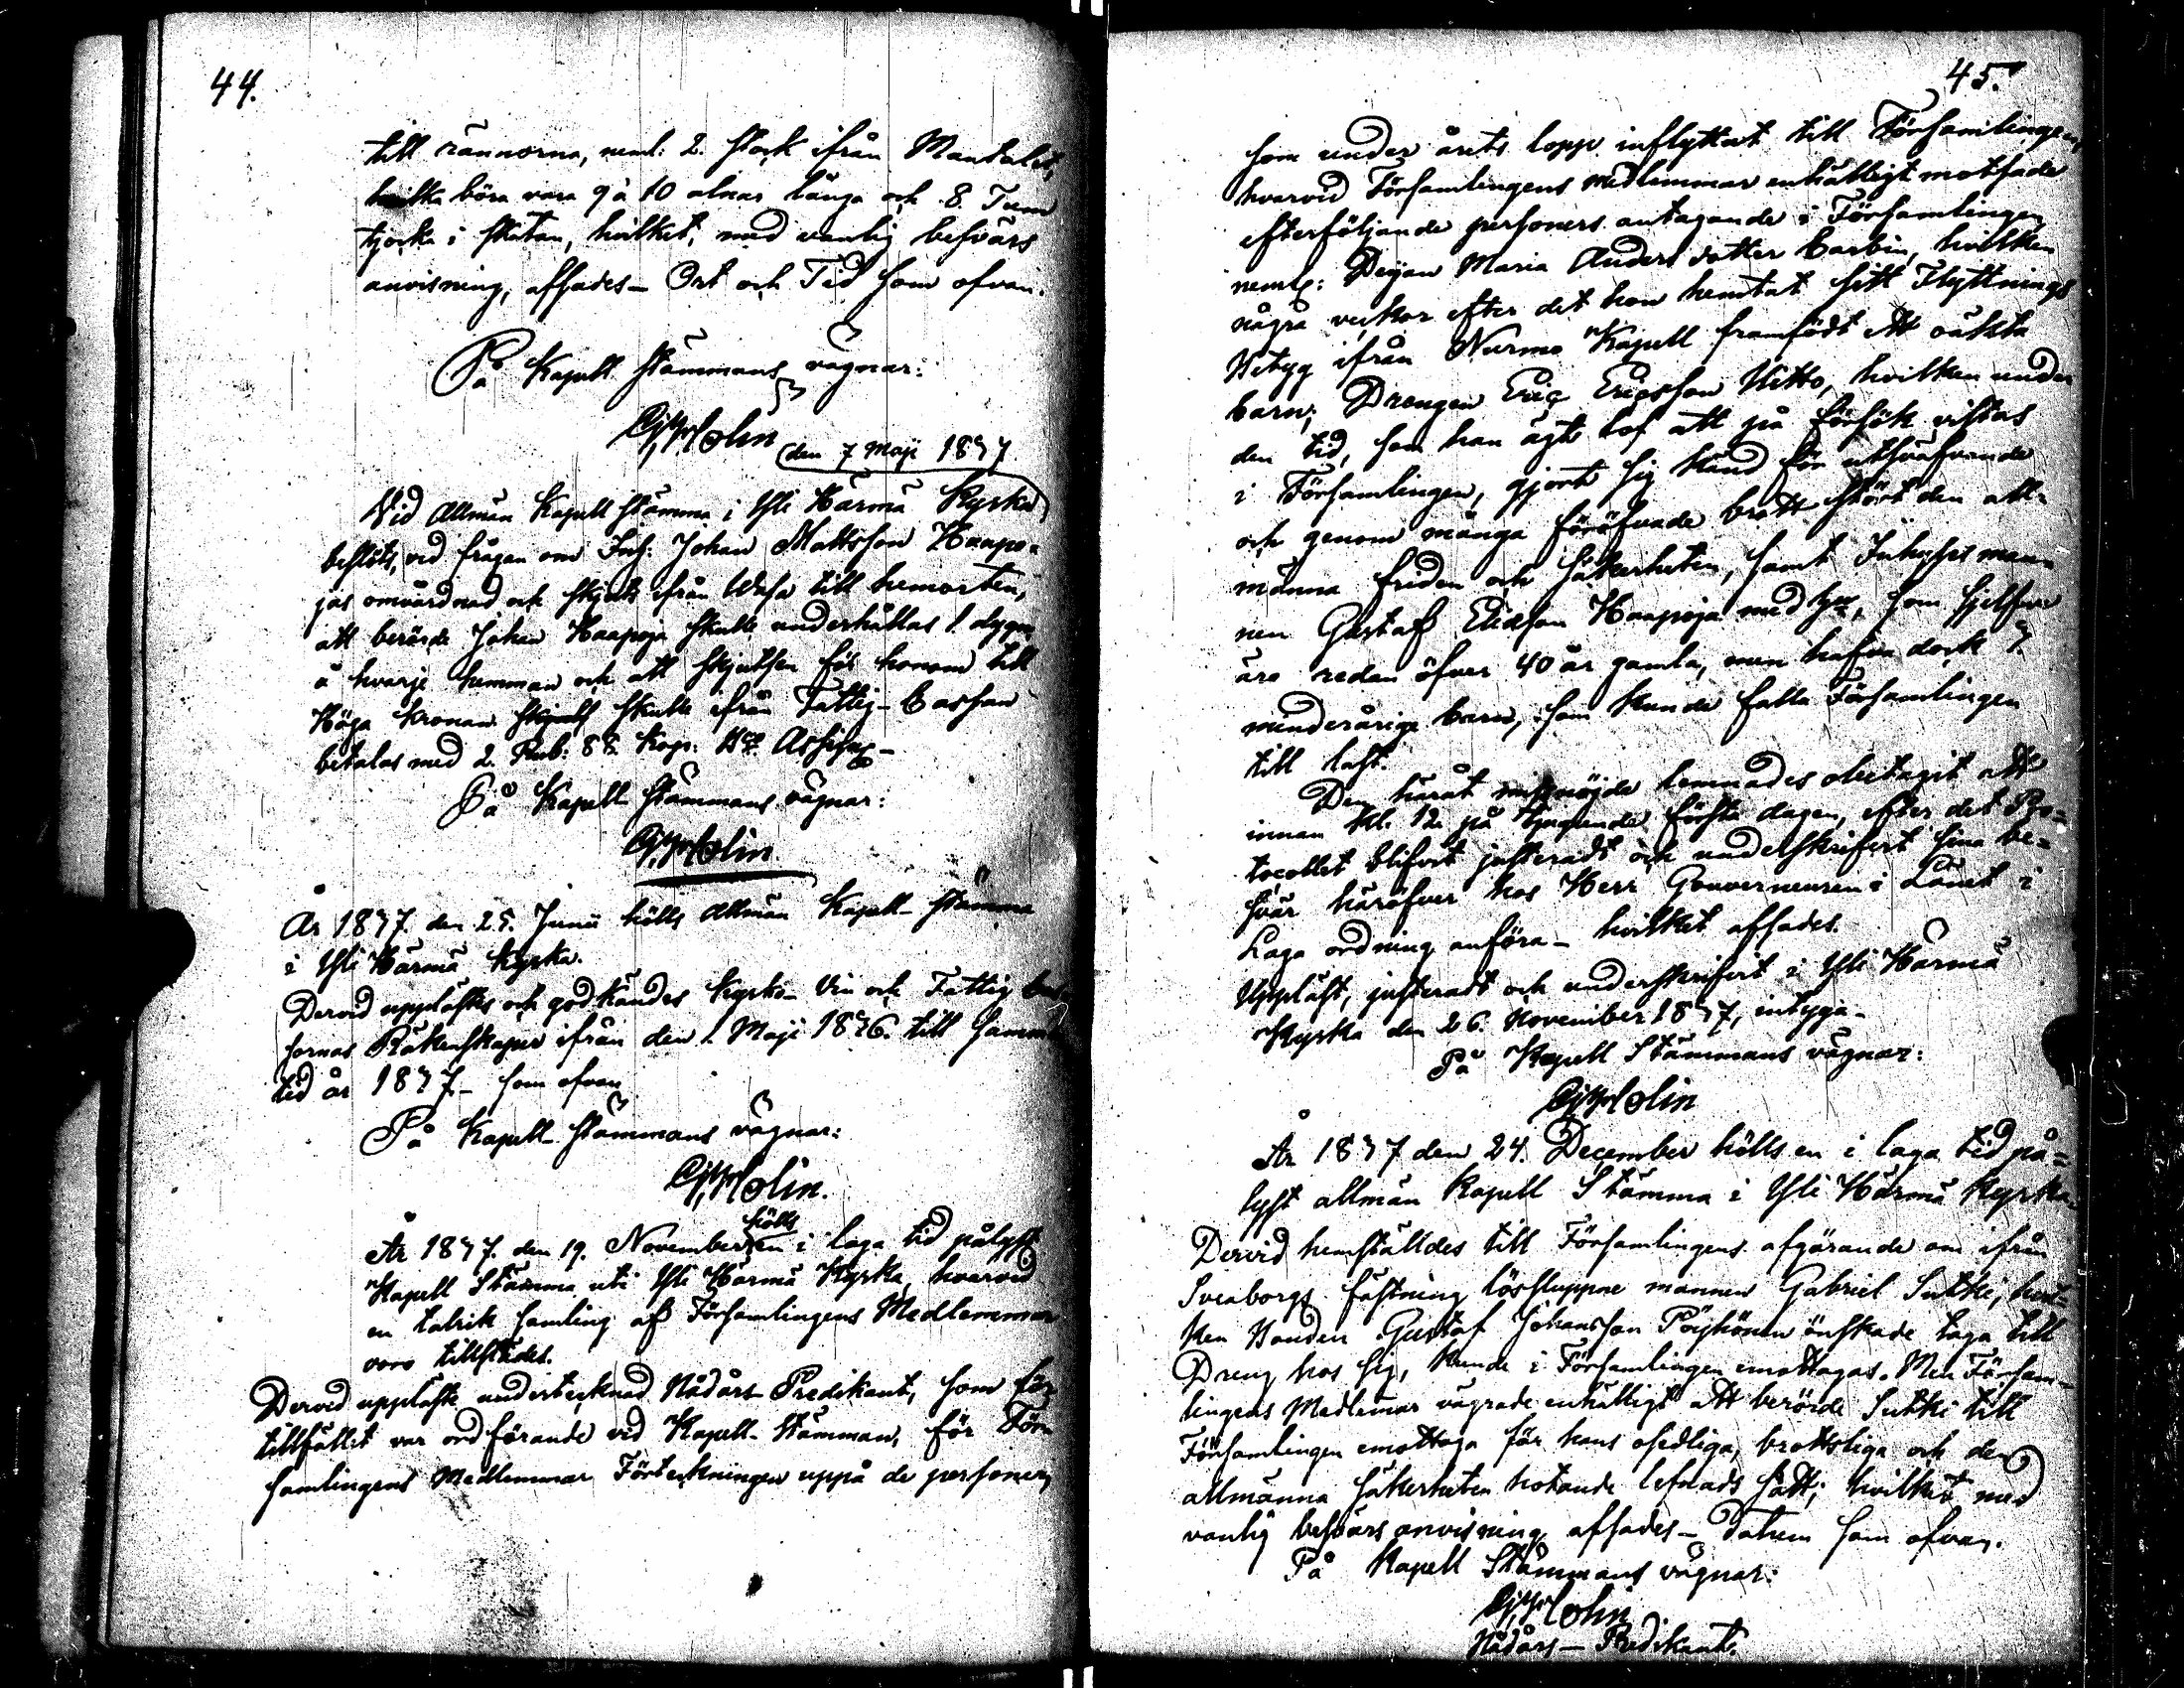 44.
till rännorna, neml: 2. stock ifrån Mantalet,
hvilka böra vara 9 à 10 alnar långa och 8. Tum
tjocka i skatan, hvilket, med vanlig besvärs
anvisning, afsades – Ort och Tid som ofvan.
På Kapell stämmans vägnar:
Holin
den 7 Maji 1837
Vid Allmän Kapell stämma i Ylihärmä Kyrka
beslöts, vid frågan om Inh: Johan Mattsson Haapo-
jas omvårdnad och skjuts ifrån Wasa till hemorten,
att berörde Johan Haapoja skulle underhållas 1. dygn
å hvarje hemman och att skjutsen för honom till
Höga Kronan skulle ifrån Fattig-Cassan
betalas med 2. Rub: 88. Kop: Assign –
På Kapell stämmans vägnar:
Holin.
År 1837. den 25. Junii hölls Allmän Kapell-stämma
i Yli Härmä Kyrka.
Dervid upplästes och godkändes Kyrko- Vin och Fattig Cas-
sornas Räkenskaper ifrån den 1. Maji 1836. till samma
tid år 1837 – som ofvan
På Kapell stämmans vägnar:
Holin.
hölls
År 1837. den 19. November en i laga tid pålyst
Kapell Stämma uti Yli Härmä Kyrka, hvarvid
en talrik samling af Församlingens Medlemmar
voro tillstädes.
Dervid uppläste undertecknad Nådårs-Predikant, som för
tillfället var ordförande vid Kapell-stämman, för För-
samlingens Medlemmar Förteckningen uppå de personer,
45.
som under årets lopp inflyttat till Församlingen,
hvarvid Församlingens medlemmar enhälligt motsade
efterföljande personers antagande i Församlingen
neml: Pigan Maria Anders dotter Carbin, hvilken
några veckor efter det hon hemtat sitt Flyttnings
Betyg ifrån Nurmo Kapell framfödt ett oäkta
barn; Drengen Eric Ericsson Hitto, hvilken under
den tid, som han ägt lof att på försök vistas
i Församlingen, gjort sig känd för utsväfvande
och genom många föröfvade brott stört den all-
männa friden och säkerheten, samt Inhyses man-
nen Gustaf Elidsson Haapoja med hu, som sjelfve
äro redan öfver 40 år gamla, men hafva dock 7.
minderåriga barn, som kunde falla Församlingen
till last.
Den häråt missnöjde lemnades obetagit att
innan kl. 12 på tjugonde första dagen, efter det Pro-
tocollet blifvit justeradt och underskrifvit sina be-
svär häröfver hos Herr Gouverneuren i Länet i
Laga ordning anföra – hvilket afsades.
Uppläst, justeradt och underskrifvit i Yli Härmä
Kyrka den 26. November 1837, intyga –
På Kapell Stämmans vägnar:
Holin
År 1837 den 24. December hölls en i laga tid på-
lyst allmän Kapell Stämma i Yli Härmä Kyrka.
Dervid hemställdes till Församlingens afgörande om ifrån
Sveaborgs fästning lössluppne mannen Gabriel Sutki, hvil-
ken Bonden Gustaf Johansson Pöyhönen önskade taga till
Dreng hos sig, kunde i Församlingen emottagas. Men Försam-
lingens Medlemar vägrade enhälligt att berörde Sutki till
Församlingen emottaga för hans osedliga, brottsliga och den
allmänna säkerheten hotande lefnads sätt; hvilket med
vanlig besvärs anvisning afsades – Datum som ofvan.
På Kapell Stämmans vägnar:
Holin
Nådårs – Predikant.